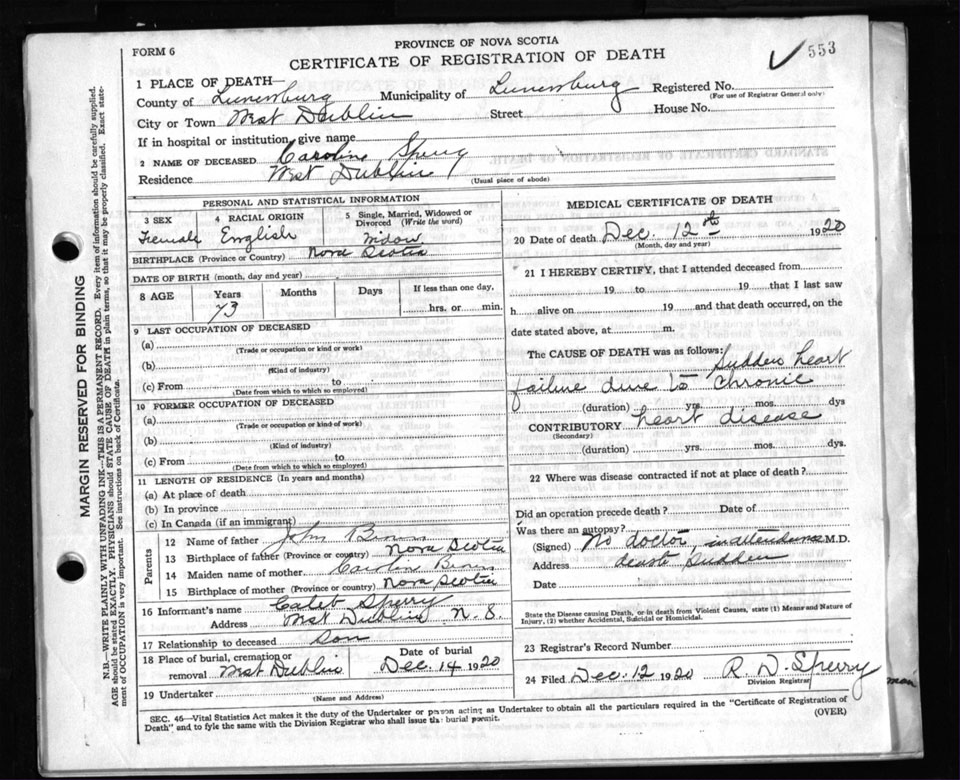 FORM 6
PROVINCE OF NOVA SCOTIA
CERTIFICATE OF REGISTRATION OF DEATH
553
1 PLACE OF DEATH—
County of Lunenburg Municipality of Lunenburg Registered No.
(For use of Registrar General only)
City or Town West Dublin Street House No.
If in hospital or institution, give name
2 NAME OF DECEASED Caroline Sperry
Residence West Dublin (Usual place of abode)
PERSONAL AND STATISTICAL INFORMATION
3 SEX 4 RACIAL ORIGIN 5 Single, Married, Widowed or Divorced (Write the word)
Female English Widow
BIRTHPLACE (Province or Country) Nova Scotia
DATE OF BIRTH (month, day and year)
8 AGE Years Months Days If less than one day,
73 hrs. or min.
9 LAST OCCUPATION OF DECEASED
(a)
(Trade or occupation or kind or work)
(b)
(Kind of industry)
(c) From to
(Date from which to which so employed)
10 FORMER OCCUPATION OF DECEASED
(a)
(Trade or occupation or kind of work)
(b)
(Kind of industry)
(c) From to
(Date from which to which so employed)
11 LENGTH OF RESIDENCE (In years and months)
(a) At place of death
(b) In province
(c) In Canada (if an immigrant)
Parents
12 Name of father John
13 Birthplace of father (Province or country) Nova Scotia
14 Maiden name of mother
15 Birthplace of mother (Province or country) Nova Scotia
16 Informant's name Caleb Sperry
Address West Dublin N. S.
17 Relationship to deceased Son
18 Place of burial, cremation or removal West Dublin Date of burial Dec. 14 1920
19 Undertaker
(Name and Address)
MEDICAL CERTIFICATE OF DEATH
20 Date of death Dec. 12th 1920
(Month, day and year)
21 I HEREBY CERTIFY, that I attended deceased from
19 to 19 that I last saw
h alive on 19 and that death occurred, on the
date stated above, at m.
The CAUSE OF DEATH was as follows: Sudden heart
failure due to chronic
(duration) yrs. mos. dys
CONTRIBUTORY heart disease
(Secondary)
(duration) yrs. mos. dys.
22 Where was disease contracted if not at place of death?
Did an operation precede death? Date of
Was there an autopsy?
(Signed) No doctor in attendance M.D.
Address death sudden
Date
State the Disease causing Death, or in death from Violent Causes, state (1) Means and Nature of
Injury, (2) whether Accidental, Suicidal or Homicidal.
23 Registrar's Record Number
24 Filed Dec. 12 1920 R. D. Sperry
Division Registrar
SEC. 46—Vital Statistics Act makes it the duty of the Undertaker or person acting as Undertaker to obtain all the particulars required in the "Certificate of Registration of
Death" and to fyle the same with the Division Registrar who shall issue the burial permit. (OVER)
MARGIN RESERVED FOR BINDING
N.B.—WRITE PLAINLY WITH UNFADING INK—THIS IS A PERMANENT RECORD. Every item of information should be carefully supplied.
AGE should be stated EXACTLY. PHYSICIANS should STATE CAUSE OF DEATH in plain terms, so that it may be properly classified. Exact statement of OCCUPATION is very important. See instructions on back of Certificate.